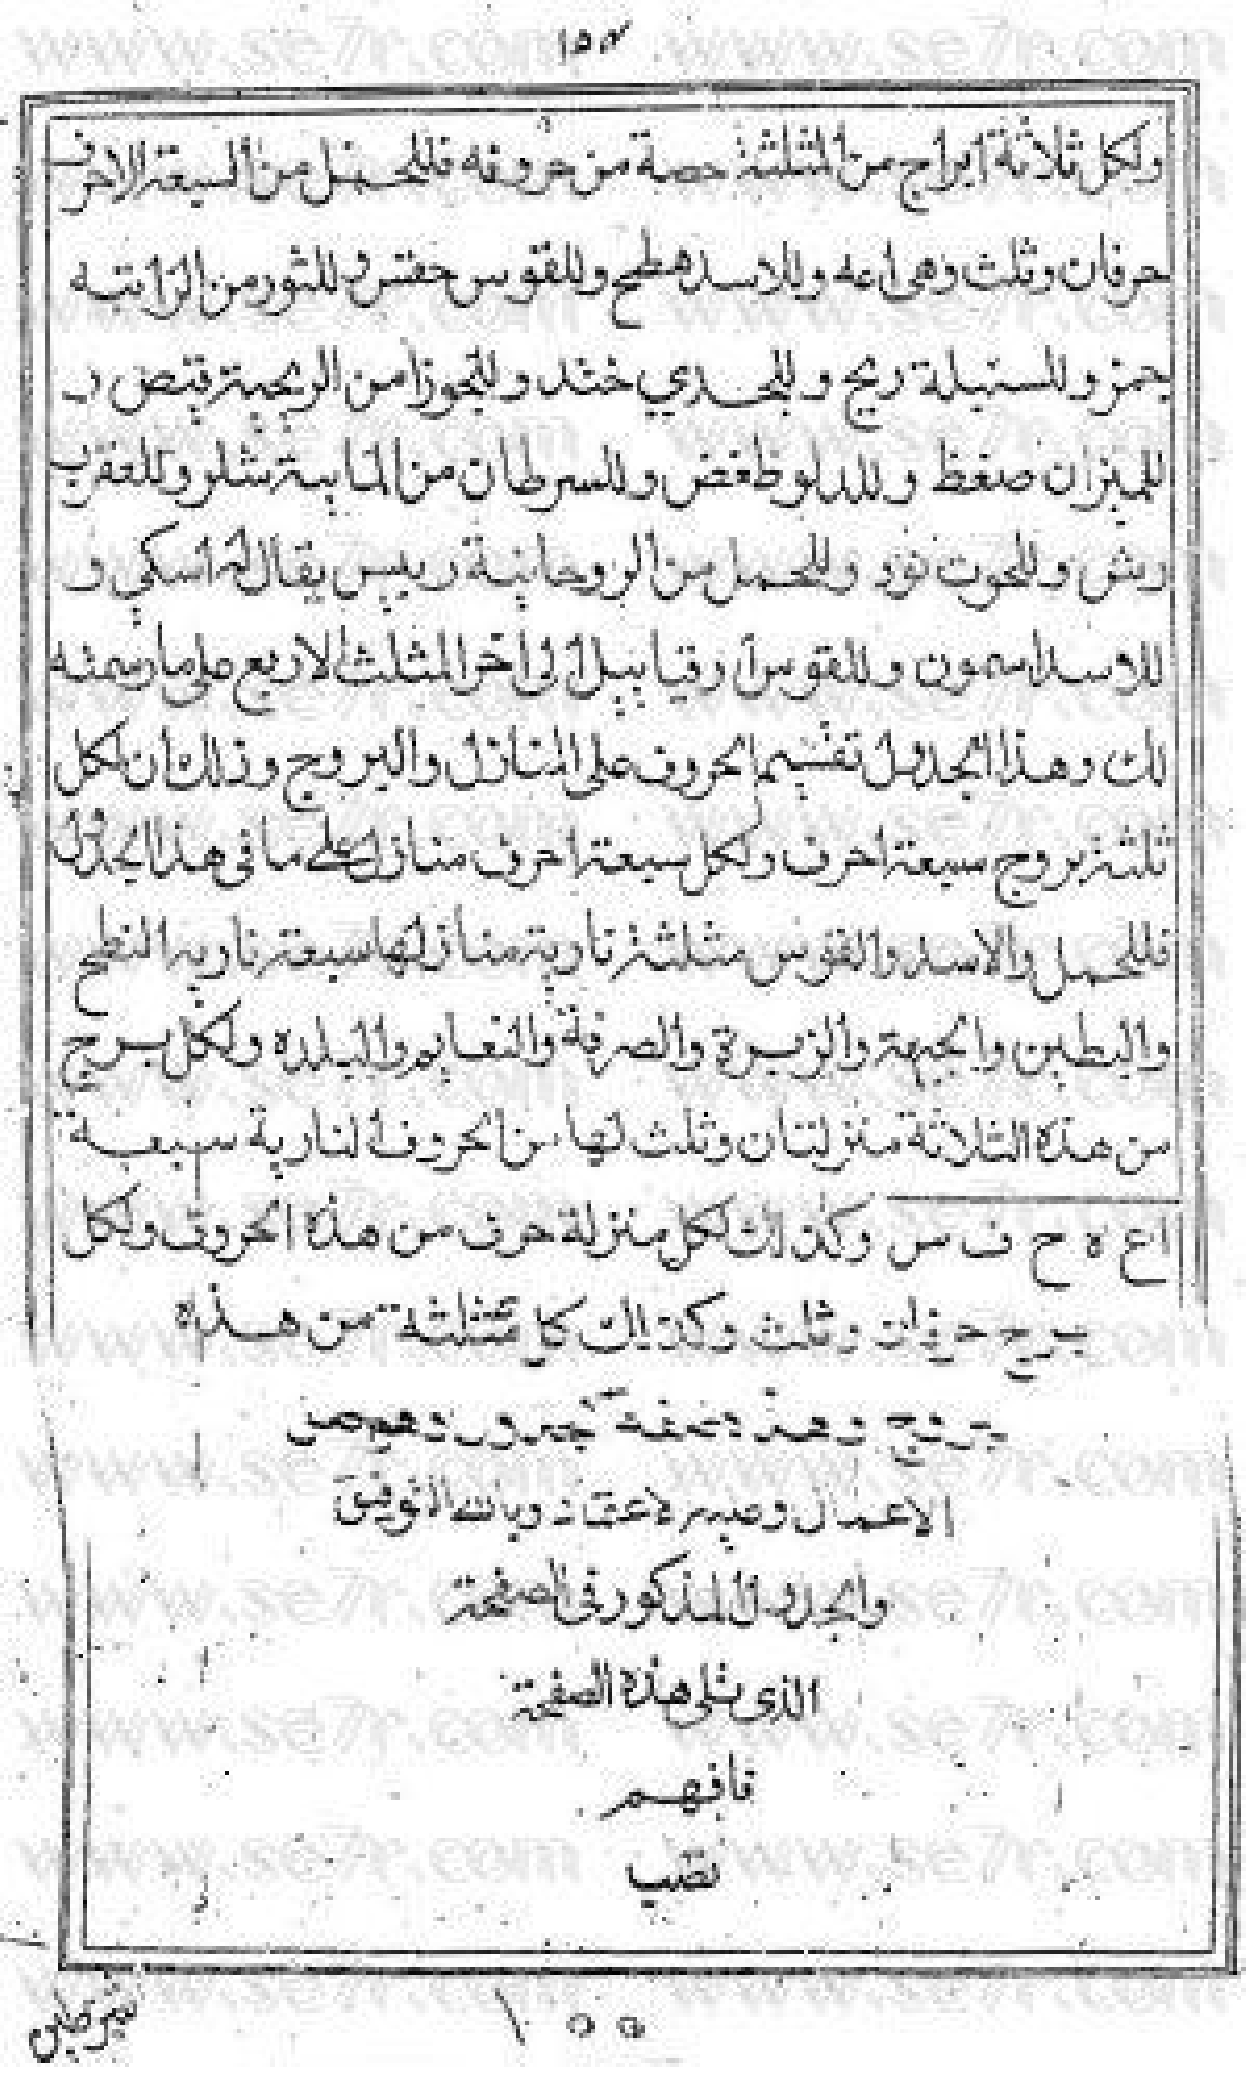 ولكل ثلاثة ابراج من المثلثة حصة من حروفه فللحمل من السبعة الاحرف
حرفان وثلث وهى اعه وللاسد هطح وللقوس حفس وللثور من الترابية
جمز وللسنبلة ريح وللجدي خثد وللجوزا من الريحية تنض و
للميزان صغظ وللدلو ظغض وللسرطان من المايية شلر وللعقرب
رش وللحوت نوو وللحمل من الروحانية رييس يقال له اسكي و
للاسد اسمون وللقوس ارقياييل الى اخر المثلث الاربع على ما رسمته
لك وهذا الجدول تقسيم الحروف على المنازل والبروج وذلك ان لكل
ثلثة بروج سبعة احرف ولكل سبعة احرف منازل على ما فى هذا الجدول
فللحمل والاسد والقوس مثلثة نارية منازلها سبعة نارية النطح
والبطين والجبهة والزبرة والصرفة والنعايم والبلده ولكل برج
من هذه الثلاثة منزلتان وثلث لها من الحروف النارية سبعة
ا ع ه ح ف س وكذلك لكل منزلة حرف من هذه الحروف ولكل
برج حرفان وثلث وكذلك كل مثلثة من هذه
بروج وهذه صفة
الاعمال وبالله التوفيق
والجدول المذكور فى الصفحة
الذى تلى هذه الصفحة
فافهم
تصب
www.se7r.com
١٥٥